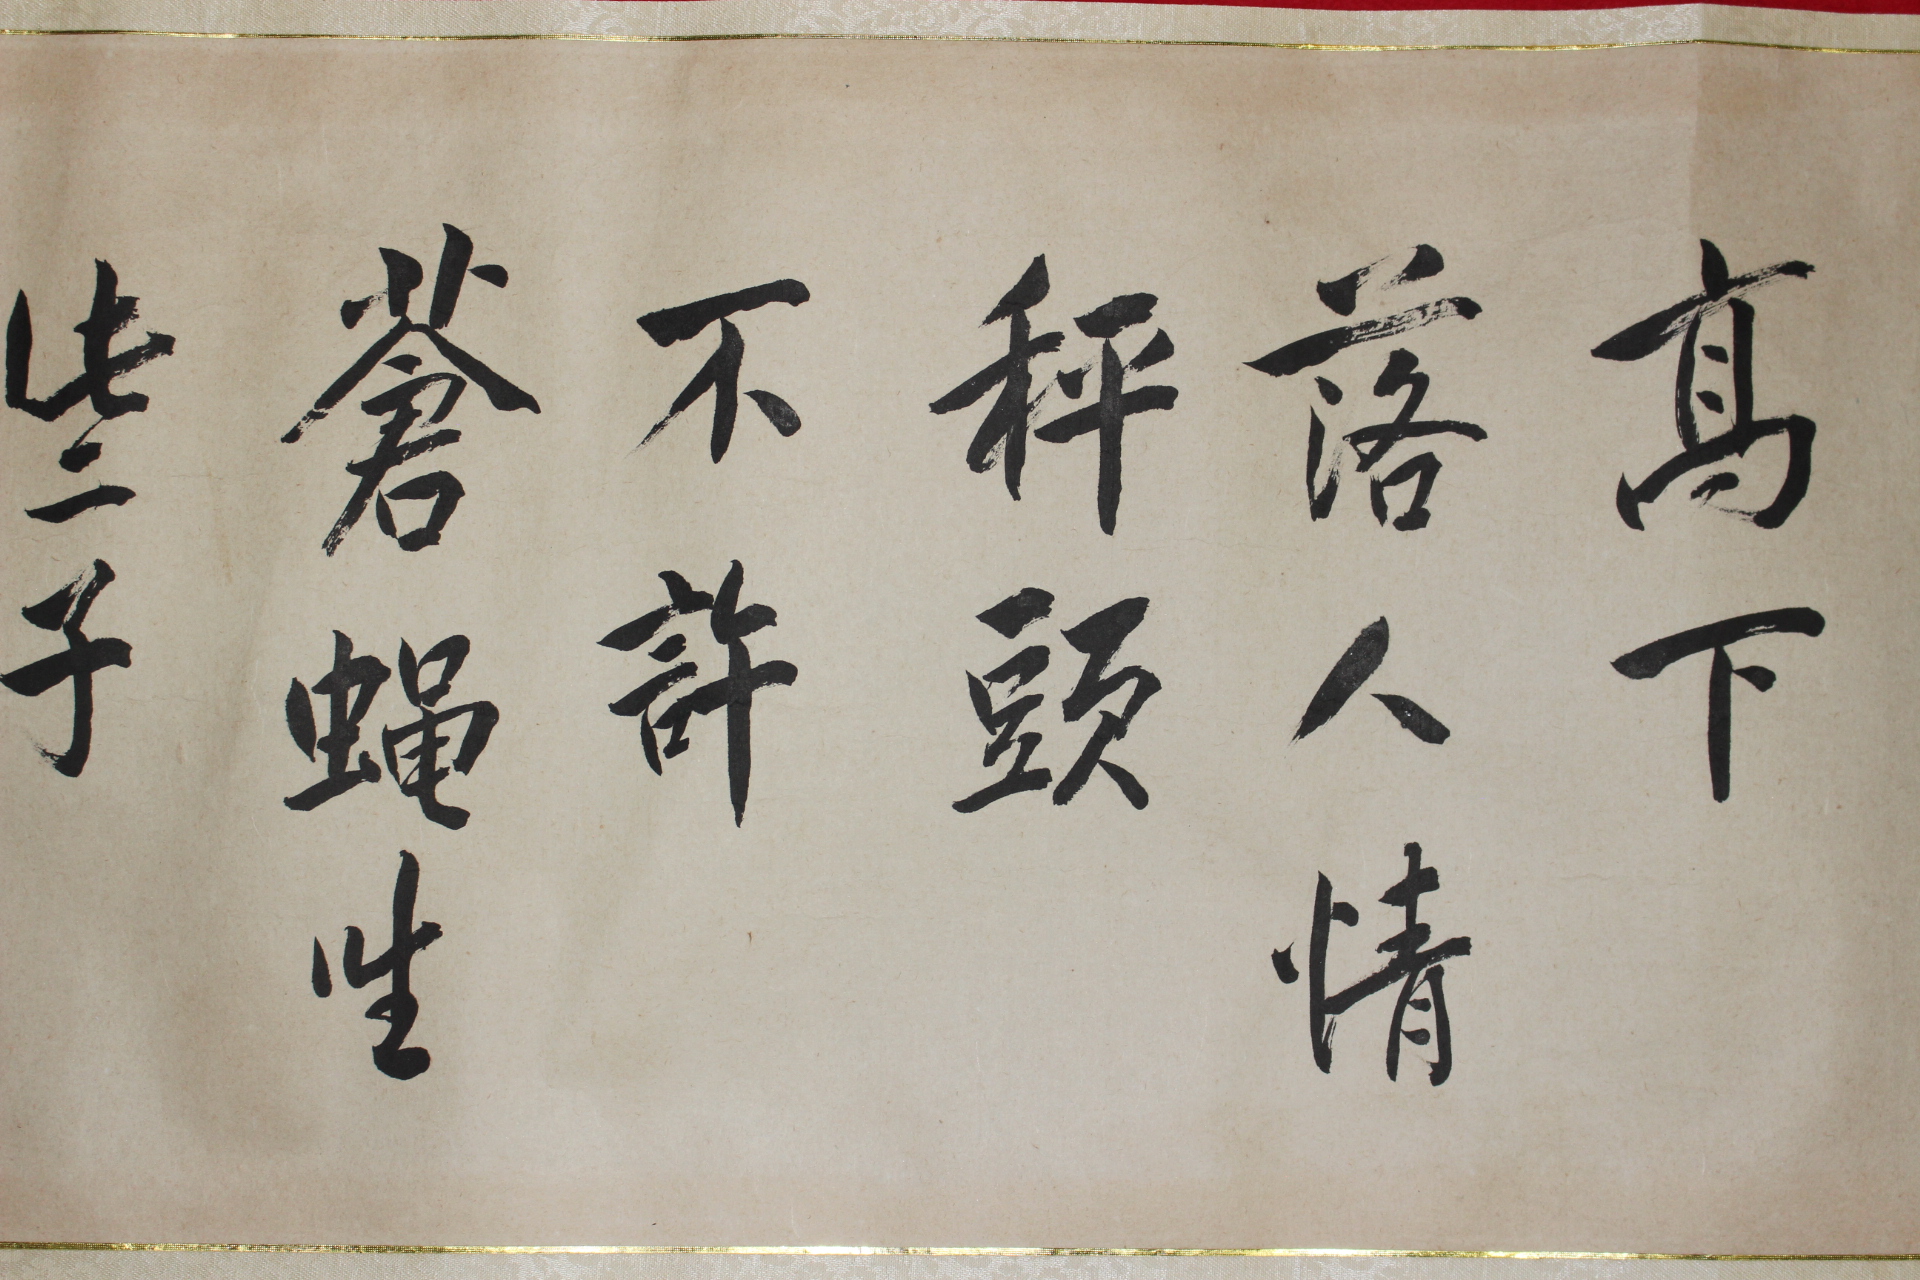 高下
落人情
秤頭
不許
蒼蠅坐
些子